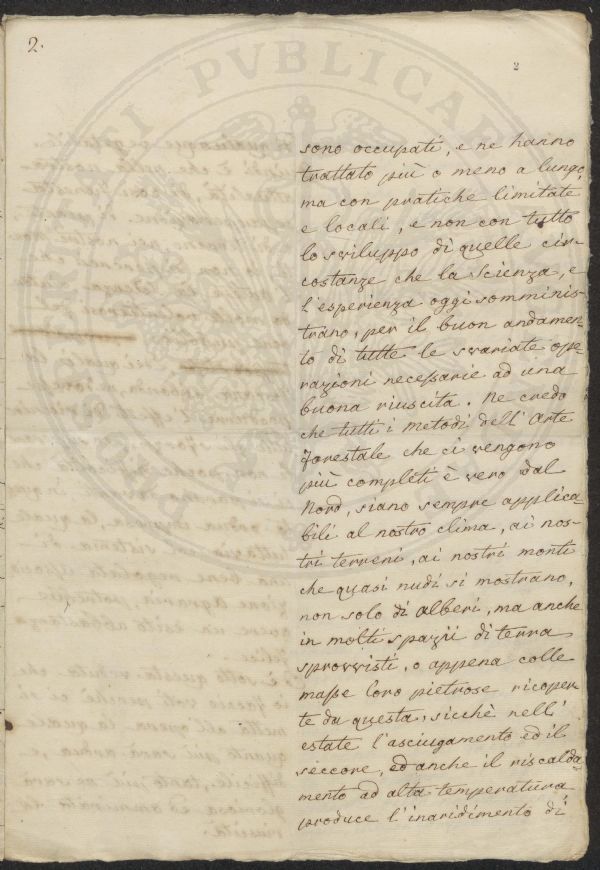 2.
2
sono occupati, e ne hanno
trattato più o meno a lungo,
ma con pratiche limitate
e locali, e non con tutto
lo sviluppo di quelle cir-
costanze che la scienza, e
l'esperienza oggi somminis-
trano, per il buon andamen-
to di tutte le svariate ope-
razioni necessarie ad una
buona riuscita. Ne credo
che tutti i metodi dell'Arte
Forestale che ci vengono
più completi è vero dal
Nord, siano sempre applica-
bili al nostro clima, ai nos-
tri terreni, ai nostri monti
che quasi nudi si mostrano,
non solo di alberi, ma anche
in molti spazii di terra
sprovvisti, o appena colle
masse loro pietrose ricoper-
te da questa, sicchè nell'
estate l'asciugamento ed il
seccore, ed anche il riscalda
mento ad alta temperatura
produce l'inaridimento di